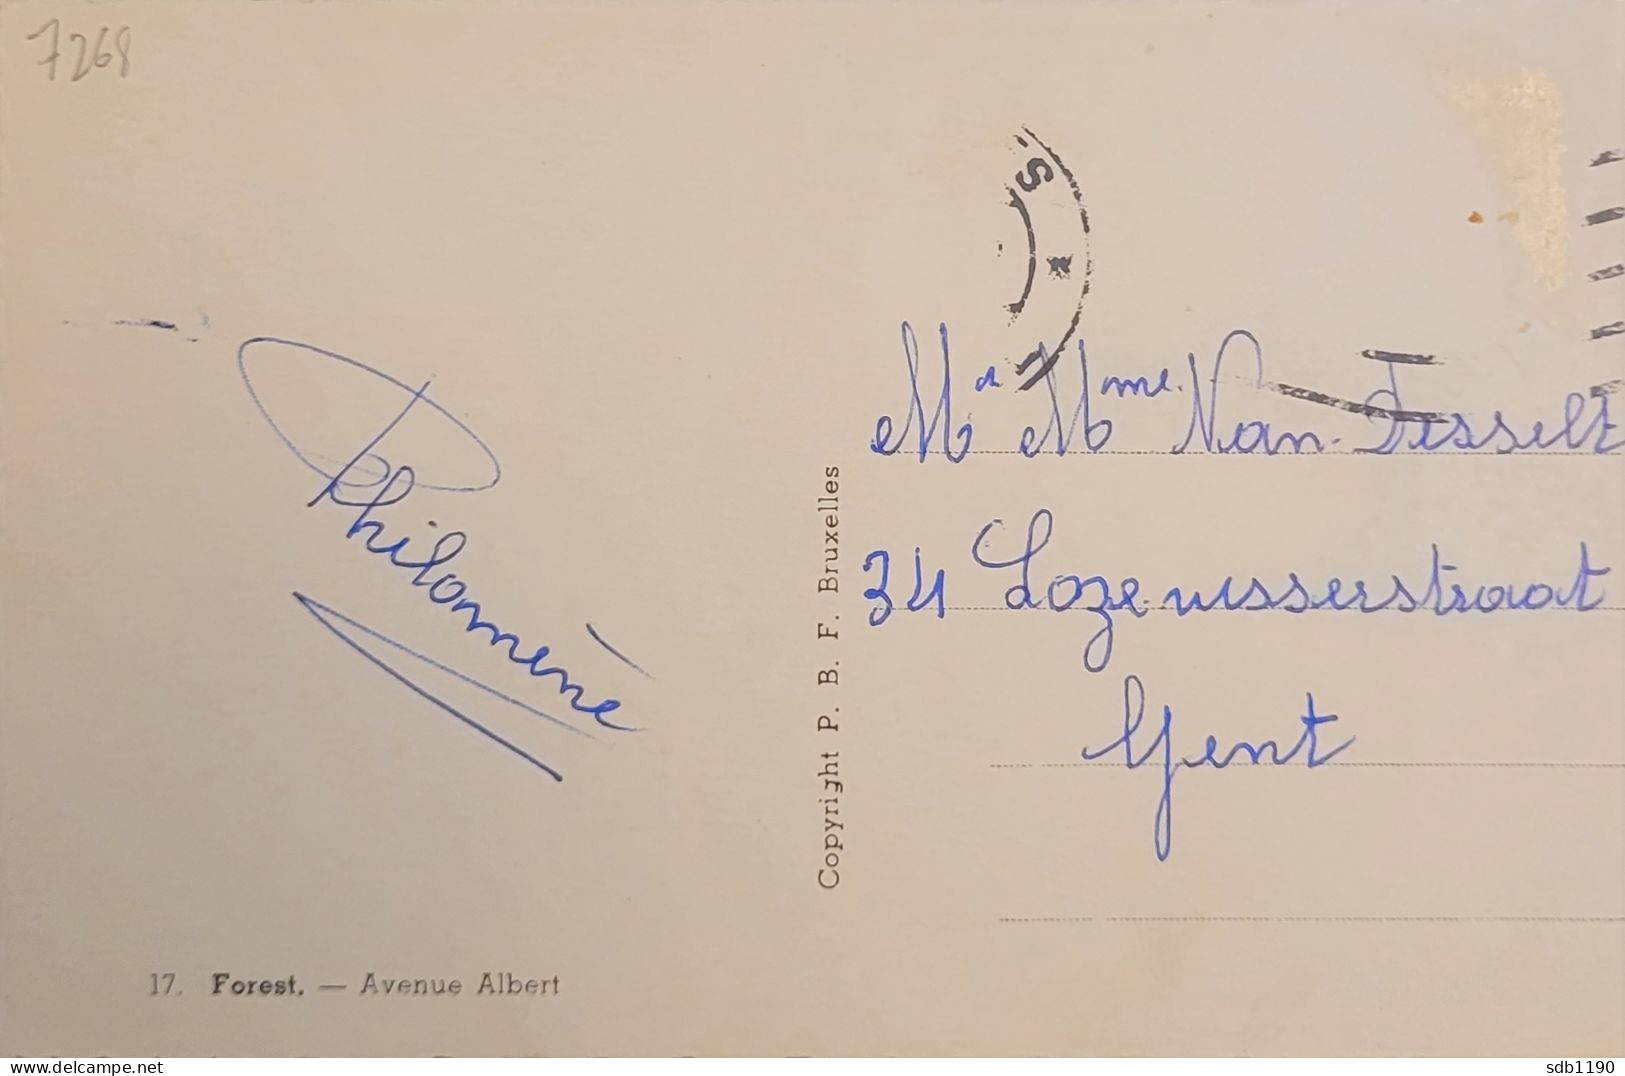 7268
Philomène
17. Forest. — Avenue Albert
Copyright P. B. F. Bruxelles
S
Mr Mme Van
34 Lozenisserstraat
Gent
delcampe.net
sdb1190